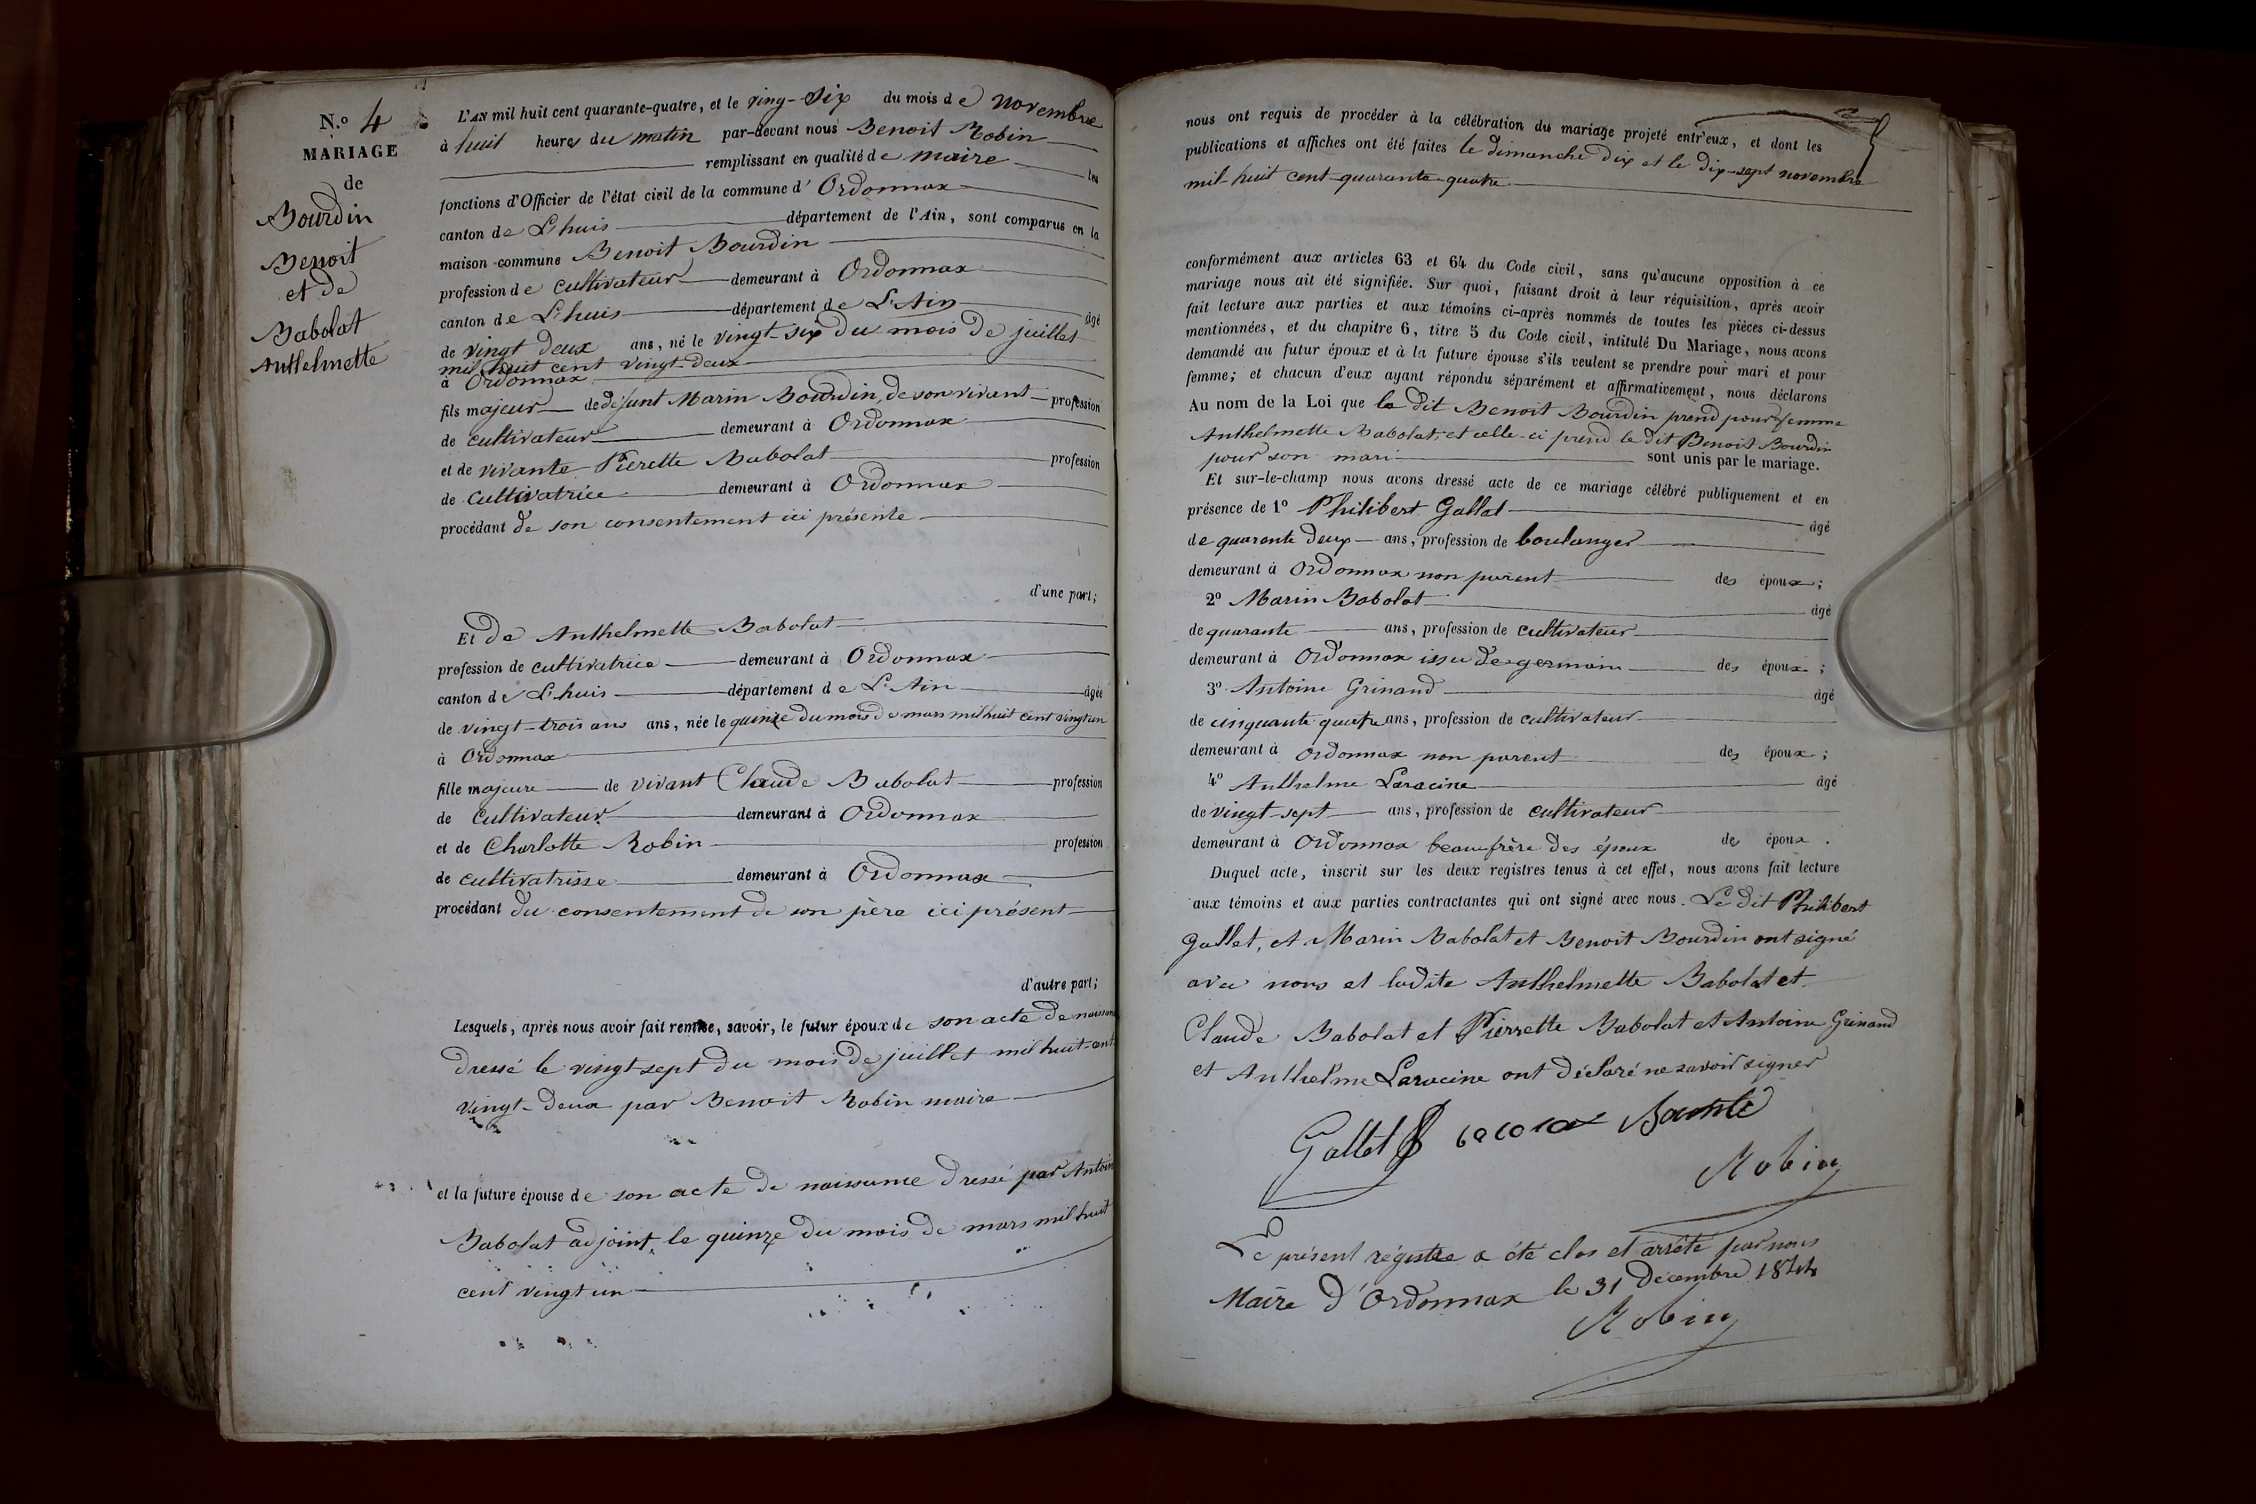 N.º 4
MARIAGE
de
Bourdin
Benoit
et de
Babolat
Anthelmette
L'AN mil huit cent quarante-quatre, et le ving-six du mois de novembre
à huit heures du matin par-devant nous Benoit Robin
remplissant en qualité de maire les
fonctions d'Officier de l'état civil de la commune d' Ordonnax
canton de L'huis département de l'Ain, sont comparus en la
maison commune Benoit Bourdin
profession de cultivateur demeurant à Ordonnax
canton de L'huis département de L'Ain âgé
de vingt deux ans, né le vingt-six du mois de juillet
mil huit cent vingt-deux
à Ordonnax
fils majeur de défunt Marin Bourdin, de son vivant profession
de cultivateur demeurant à Ordonnax
et de vivante Pierette Babolat profession
de cultivatrice demeurant à Ordonnax
procédant de son consentement ici présente
d'une part;
Et de Anthelmette Babolat
profession de cultivatrice demeurant à Ordonnax
canton de L'huis département de L'Ain âgée
de vingt-trois ans ans, née le quinze du mois de mars mil huit cent vingt un
à Ordonnax
fille majeure de vivant Claude Babolat profession
de cultivateur demeurant à Ordonnax
et de Charlotte Robin profession
de cultivatrisse demeurant à Ordonnax
procédant du consentement de son père ici présent
d'autre part;
Lesquels, après nous avoir fait remise, savoir, le futur époux de son acte de naissance
dressé le vingt sept du mois de juillet mil huit-cent
vingt-deux par Benoit Robin maire
et la future épouse de son acte de naissance dressé par Antoine
Babolat adjoint, le quinze du mois de mars mil huit
cent vingt un
nous ont requis de procéder à la célébration du mariage projeté entr'eux, et dont les
publications et affiches ont été faites le dimanche dix et le dix-sept novembre
mil huit cent quarante quatre
conformément aux articles 63 et 64 du Code civil, sans qu'aucune opposition à ce
mariage nous ait été signifiée. Sur quoi, faisant droit à leur réquisition, après avoir
fait lecture aux parties et aux témoins ci-après nommés de toutes les pièces ci-dessus
mentionnées, et du chapitre 6, titre 5 du Code civil, intitulé Du Mariage, nous avons
demandé au futur époux et à la future épouse s'ils veulent se prendre pour mari et pour
femme; et chacun d'eux ayant répondu séparément et affirmativement, nous déclarons
Au nom de la Loi que le dit Benoit Bourdin prend pour femme
Anthelmette Babolat; et celle-ci prend le dit Benoit Bourdin
pour son mari sont unis par le mariage.
Et sur-le-champ nous avons dressé acte de ce mariage célébré publiquement et en
présence de 1º Philibert Gallet âgé
de quarante deux ans, profession de boulanger
demeurant à Ordonnax non parent des époux;
2º Marin Babolat âgé
de quarante ans, profession de cultivateur
demeurant à Ordonnax issu de germain des époux;
3º Antoine Grinand âgé
de cinquante quatre ans, profession de cultivateur
demeurant à Ordonnax non parent des époux;
4º Anthelme Laracine âgé
de vingt-sept ans, profession de cultivateur
demeurant à Ordonnax beaufrère des époux des époux.
Duquel acte, inscrit sur les deux registres tenus à cet effet, nous avons fait lecture
aux témoins et aux parties contractantes qui ont signé avec nous. Le dit Philibert
Gallet, et Marin Babolat et Benoit Bourdin ont signé
avec nous et ladite Anthelmette Babolat et
Claude Babolat et Pierrette Babolat et Antoine Grinand
et Anthelme Laracine ont déclaré ne savoir signer
Gallet
Robin
Le présent régistre a été clos et arrêté par nous
Maire d'Ordonnax le 31 Décembre 1844
Robin